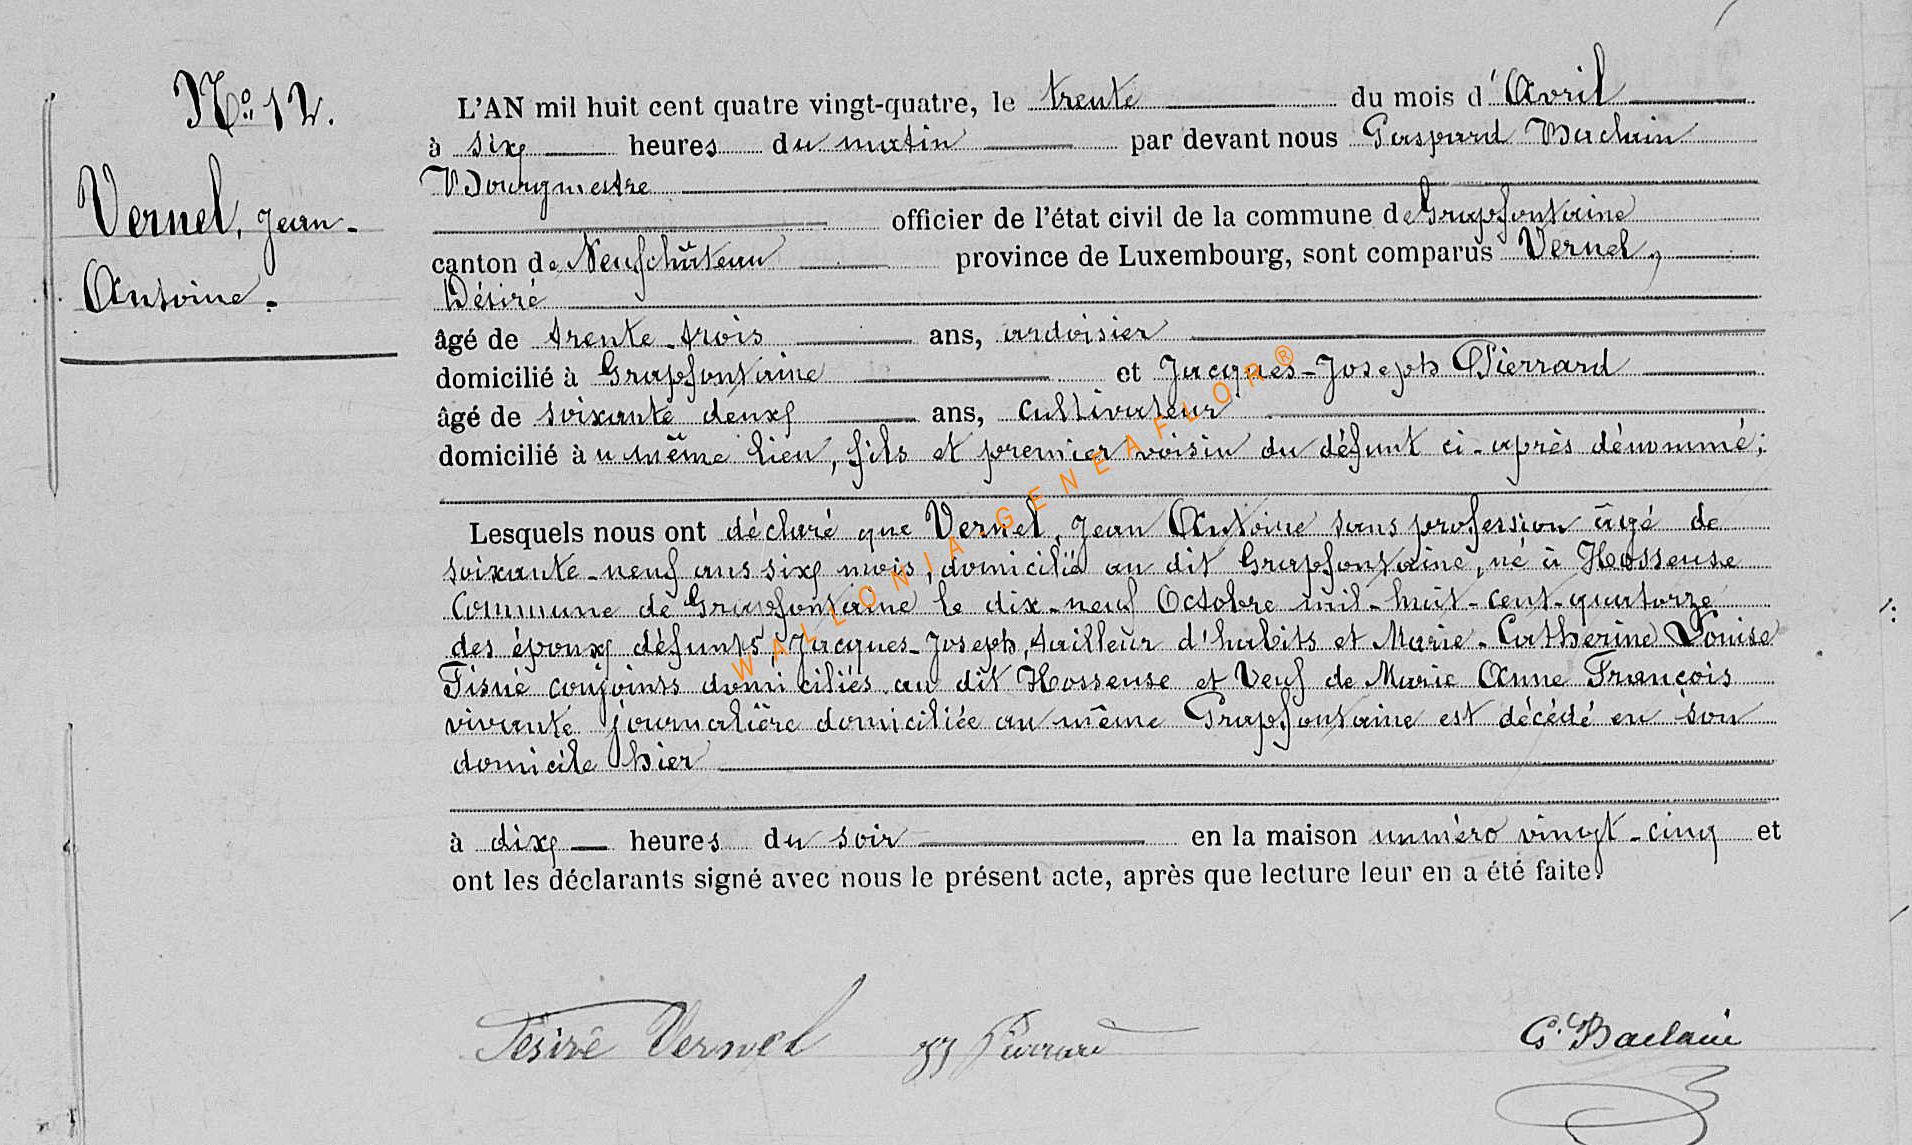 N.o 12.
Vernel, Jean-
Antoine.
L'AN mil huit cent quatre vingt-quatre, le trente du mois d'Avril
à six heures du matin par devant nous Gaspard Baclain
Bourgmestre
officier de l'état civil de la commune de Grapfontaine
canton de Neufchâteau province de Luxembourg, sont comparus Vernel,
Désiré
âgé de trente-trois ans, ardoisier
domicilié à Grapfontaine et Jacques-Joseph Pierrard
âgé de soixante deux ans, cultivateur
domicilié à u même lieu, fils et premier voisin du défunt ci-après dénommé;
Lesquels nous ont déclaré que Vernel, Jean Antoine sans profession âgé de
soixante-neuf ans six mois, domicilié au dit Grapfontaine, né à Hosseuse
Commune de Grapfontaine le dix-neuf Octobre mil-huit-cent-quatorze
des époux défunts Jacques-Joseph, tailleur d'habits et Marie-Catherine Louise
Tisné conjoints domiciliés au dit Hosseuse et Veuf de Marie Anne François
vivante journalière domiciliée au même Grapfontaine est décédé en son
domicile hier
à dix heures du soir en la maison numéro vingt-cinq et
ont les déclarants signé avec nous le présent acte, après que lecture leur en a été faite.
Désiré Vernel JJ Pierrard G. Baclain
WALLONIA-GENEAFLOR®